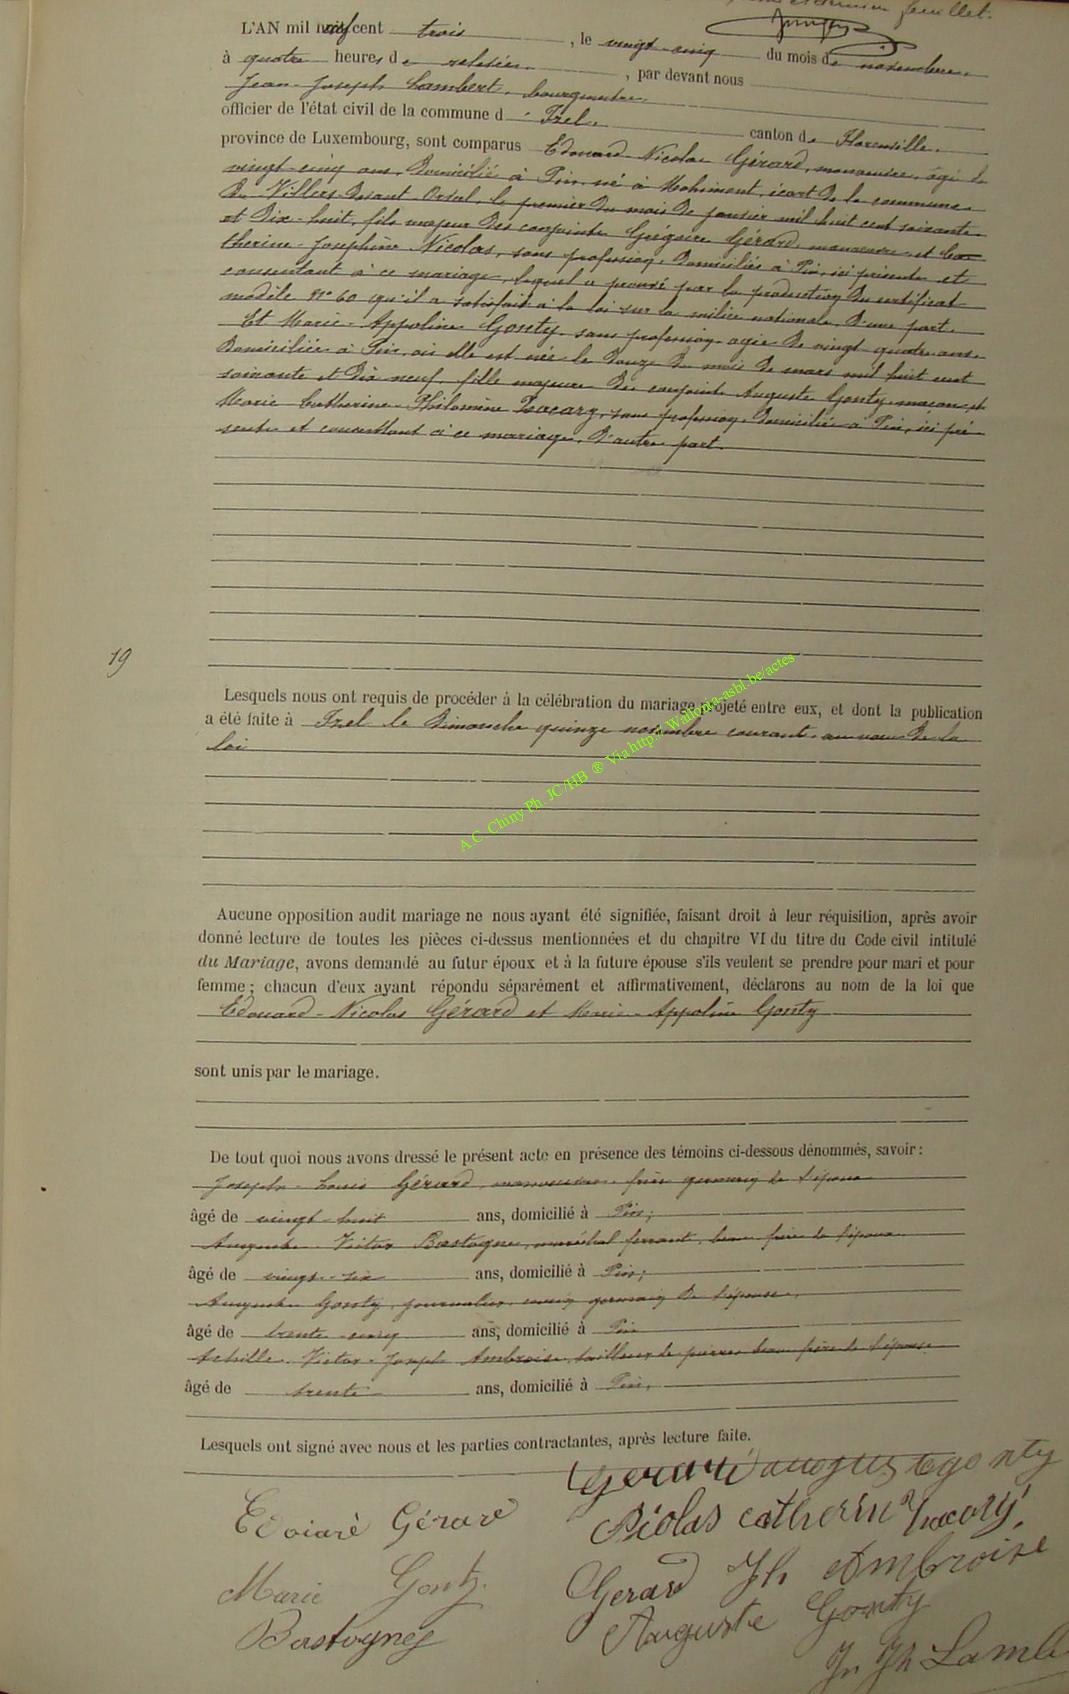 feuillet.
L'AN mil neuf cent trois, le vingt-cinq du mois de novembre,
à quatre heures de relevée, par devant nous
Jean-Joseph Lambert, bourgmestre
officier de l'état civil de la commune d'Izel, canton de Florenville,
province de Luxembourg, sont comparus Edouard-Nicolas Gérard, manoeuvre, âgé de
vingt-cinq ans, domicilié à Pin, né à Mohiment, écart de la commune
de Villers devant Orval, le premier du mois de janvier mil huit cent soixante
et dix-huit, fils majeur des conjoints Grégoire Gérard, manoeuvre et Ca-
therine-Joséphine Nicolas, sans profession, domiciliés à Pin, ici présents et
consentant à ce mariage, lequel a prouvé par la production du certificat
modèle N° 60 qu'il a satisfait à la loi sur la milice nationale, d'une part.
Et Marie-Appoline Gonty, sans profession, agée de vingt-quatre ans,
domiciliée à Pin, où elle est née le douze du mois de mars mil huit cent
soixante et dix neuf, fille majeure des conjoints Auguste Gonty, maçon et
Marie Catherine-Philomène Jacary, sans profession, domiciliés à Pin, ici pré-
sents et consentant à ce mariage, d'autre part.
19
Lesquels nous ont requis de procéder à la célébration du mariage projeté entre eux, et dont la publication
a été faite à Izel le dimanche quinze novembre courant, au voeu de la
loi
A.C. Chiny Ph. JC/HB ® Via http://Wallonia-asbl.be/actes
Aucune opposition audit mariage ne nous ayant été signifiée, faisant droit à leur réquisition, après avoir
donné lecture de toutes les pièces ci-dessus mentionnées et du chapitre VI du titre du Code civil intitulé
du Mariage, avons demandé au futur époux et à la future épouse s'ils veulent se prendre pour mari et pour
femme ; chacun d'eux ayant répondu séparément et affirmativement, déclarons au nom de la loi que
Edouard-Nicolas Gérard et Marie-Appoline Gonty
sont unis par le mariage.
De tout quoi nous avons dressé le présent acte en présence des témoins ci-dessous dénommés, savoir :
Joseph-Louis Gérard, manoeuvre, frère germain de l'époux
âgé de vingt-huit ans, domicilié à Pin;
Auguste-Victor Bastogne, maréchal ferrant, beau frère de l'époux
âgé de vingt-six ans, domicilié à Pin;
Auguste Gonty, journalier, cousin germain de l'épouse,
âgé de trente-cinq ans, domicilié à Pin
Achille-Victor-Joseph Ambroise, tailleur de pierres beau frère de l'épouse
âgé de trente ans, domicilié à Pin,
Lesquels ont signé avec nous et les parties contractantes, après lecture faite.
Gerard auguste gonty
Edouard Gérard Nicolas catherine Jacary
Marie Gonty. Gerard Jh Ambroise
Bastogne Auguste Gonty
Jn Jh Lamb